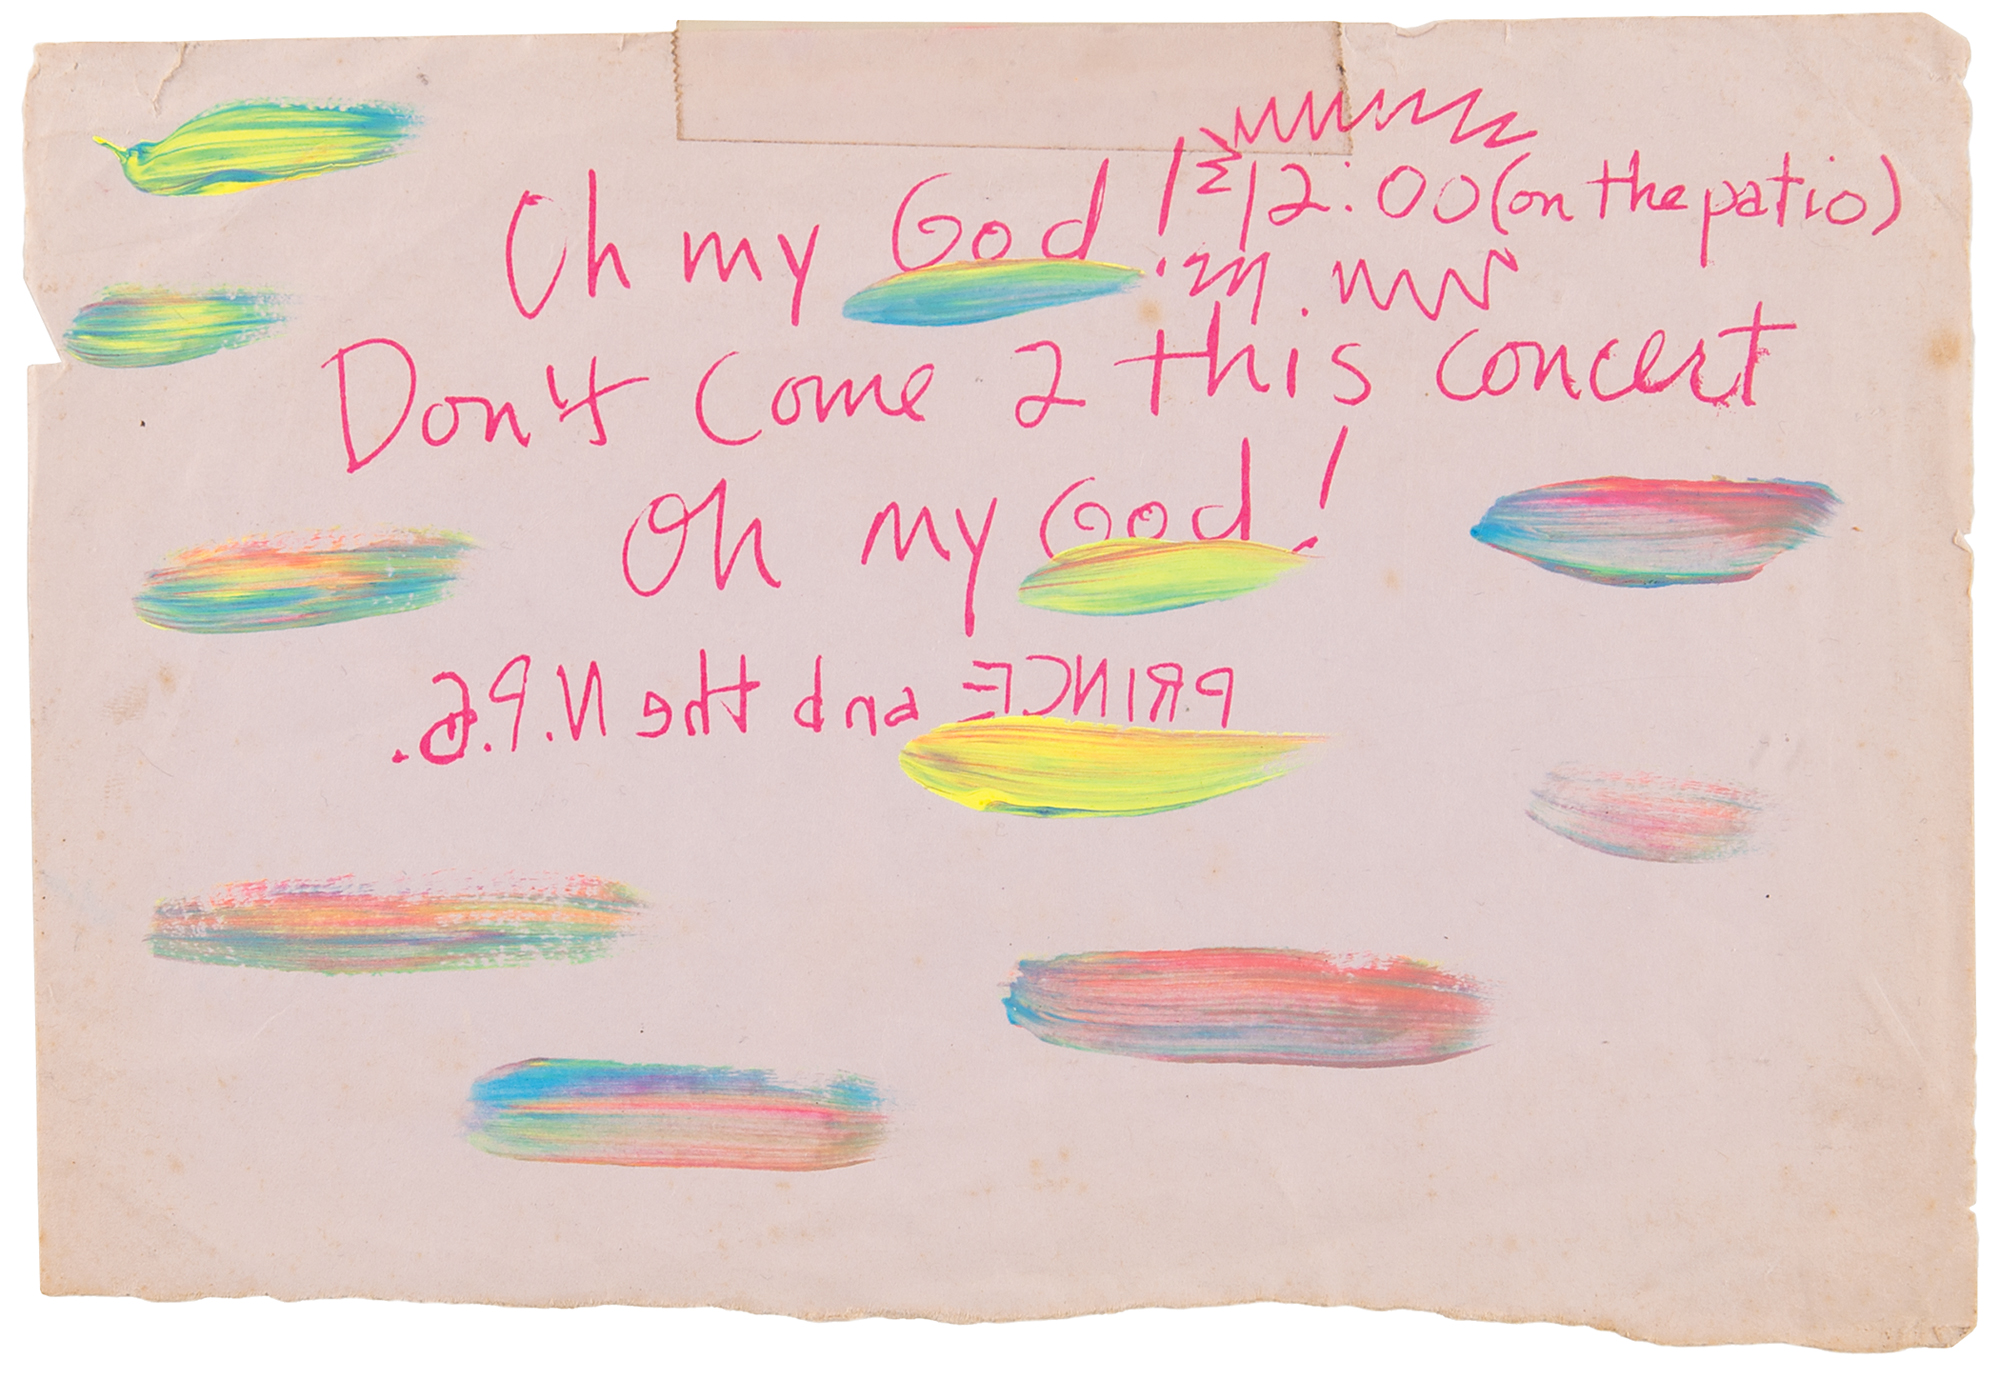 Oh my God! 12:00 (on the patio)
Don't Come 2 this concert
Oh my God!
PRINCE and the N.P.G.